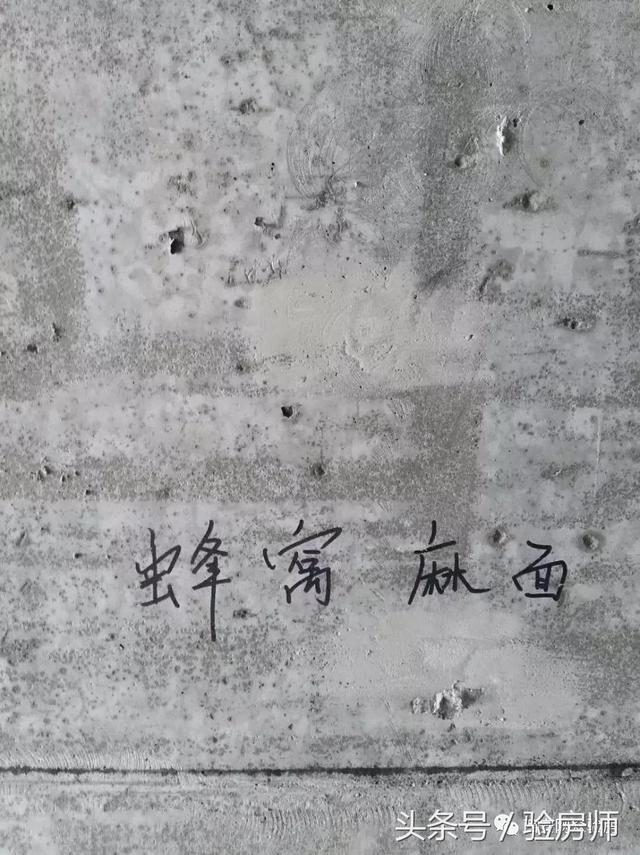 蜂窝 麻面
头条号/验房师